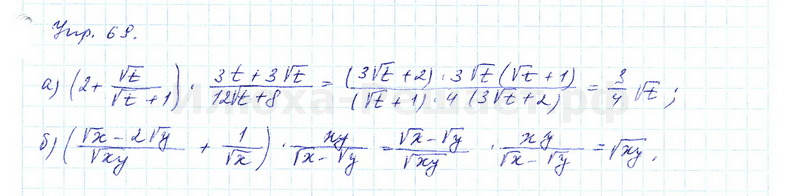 Упр. 69.
а) (2 + √t/(√t + 1)) · (3t + 3√t)/(12√t + 8) = ((3√t + 2) · 3√t (√t + 1))/((√t + 1) · 4 (3√t + 2)) = 3/4 √t ;
б) ((√x − 2√y)/√xy + 1/√x) · xy/(√x − √y) = (√x − √y)/√xy · xy/(√x − √y) = √xy .